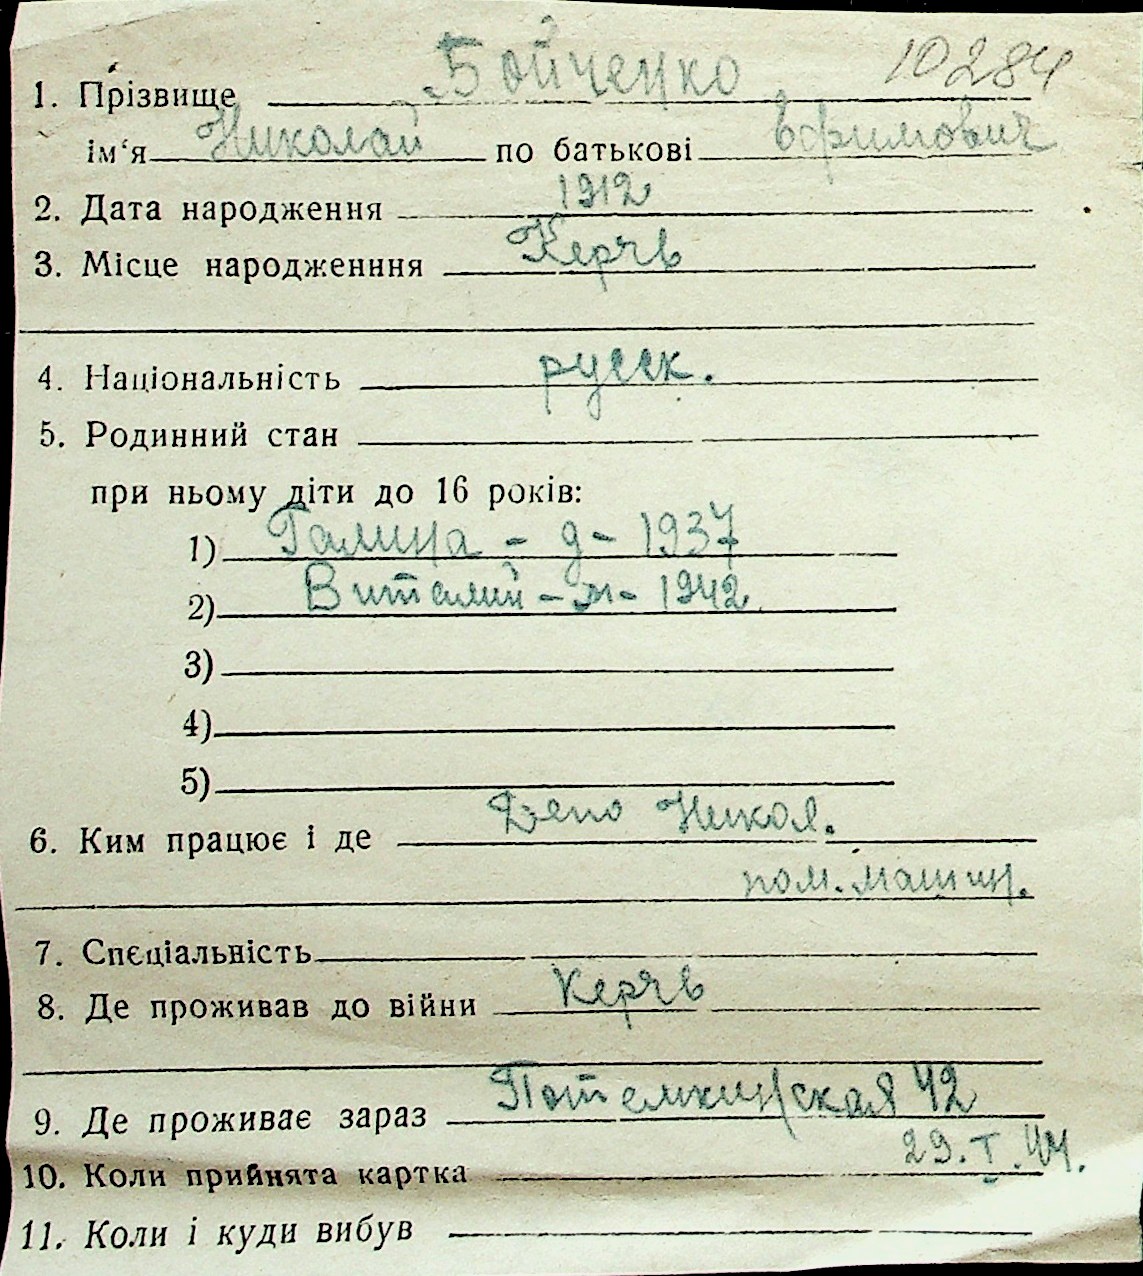 10284
1. Прізвище Бойченко
ім‘я Николай по батькові Ефимович
2. Дата народження 1912
3. Місце народженння Керчь
4. Національність русск.
5. Родинний стан
при ньому діти до 16 років:
1) Галина - д - 1937
2) Виталий - м - 1942
3)
4)
5)
6. Ким працює і де Депо Никол.
пом. машин.
7. Спєціальність
8. Де проживав до війни Керчь
9. Де проживає зараз Потемкинская 42
10. Коли прийнята картка 29.I.44.
11. Коли і куди вибув